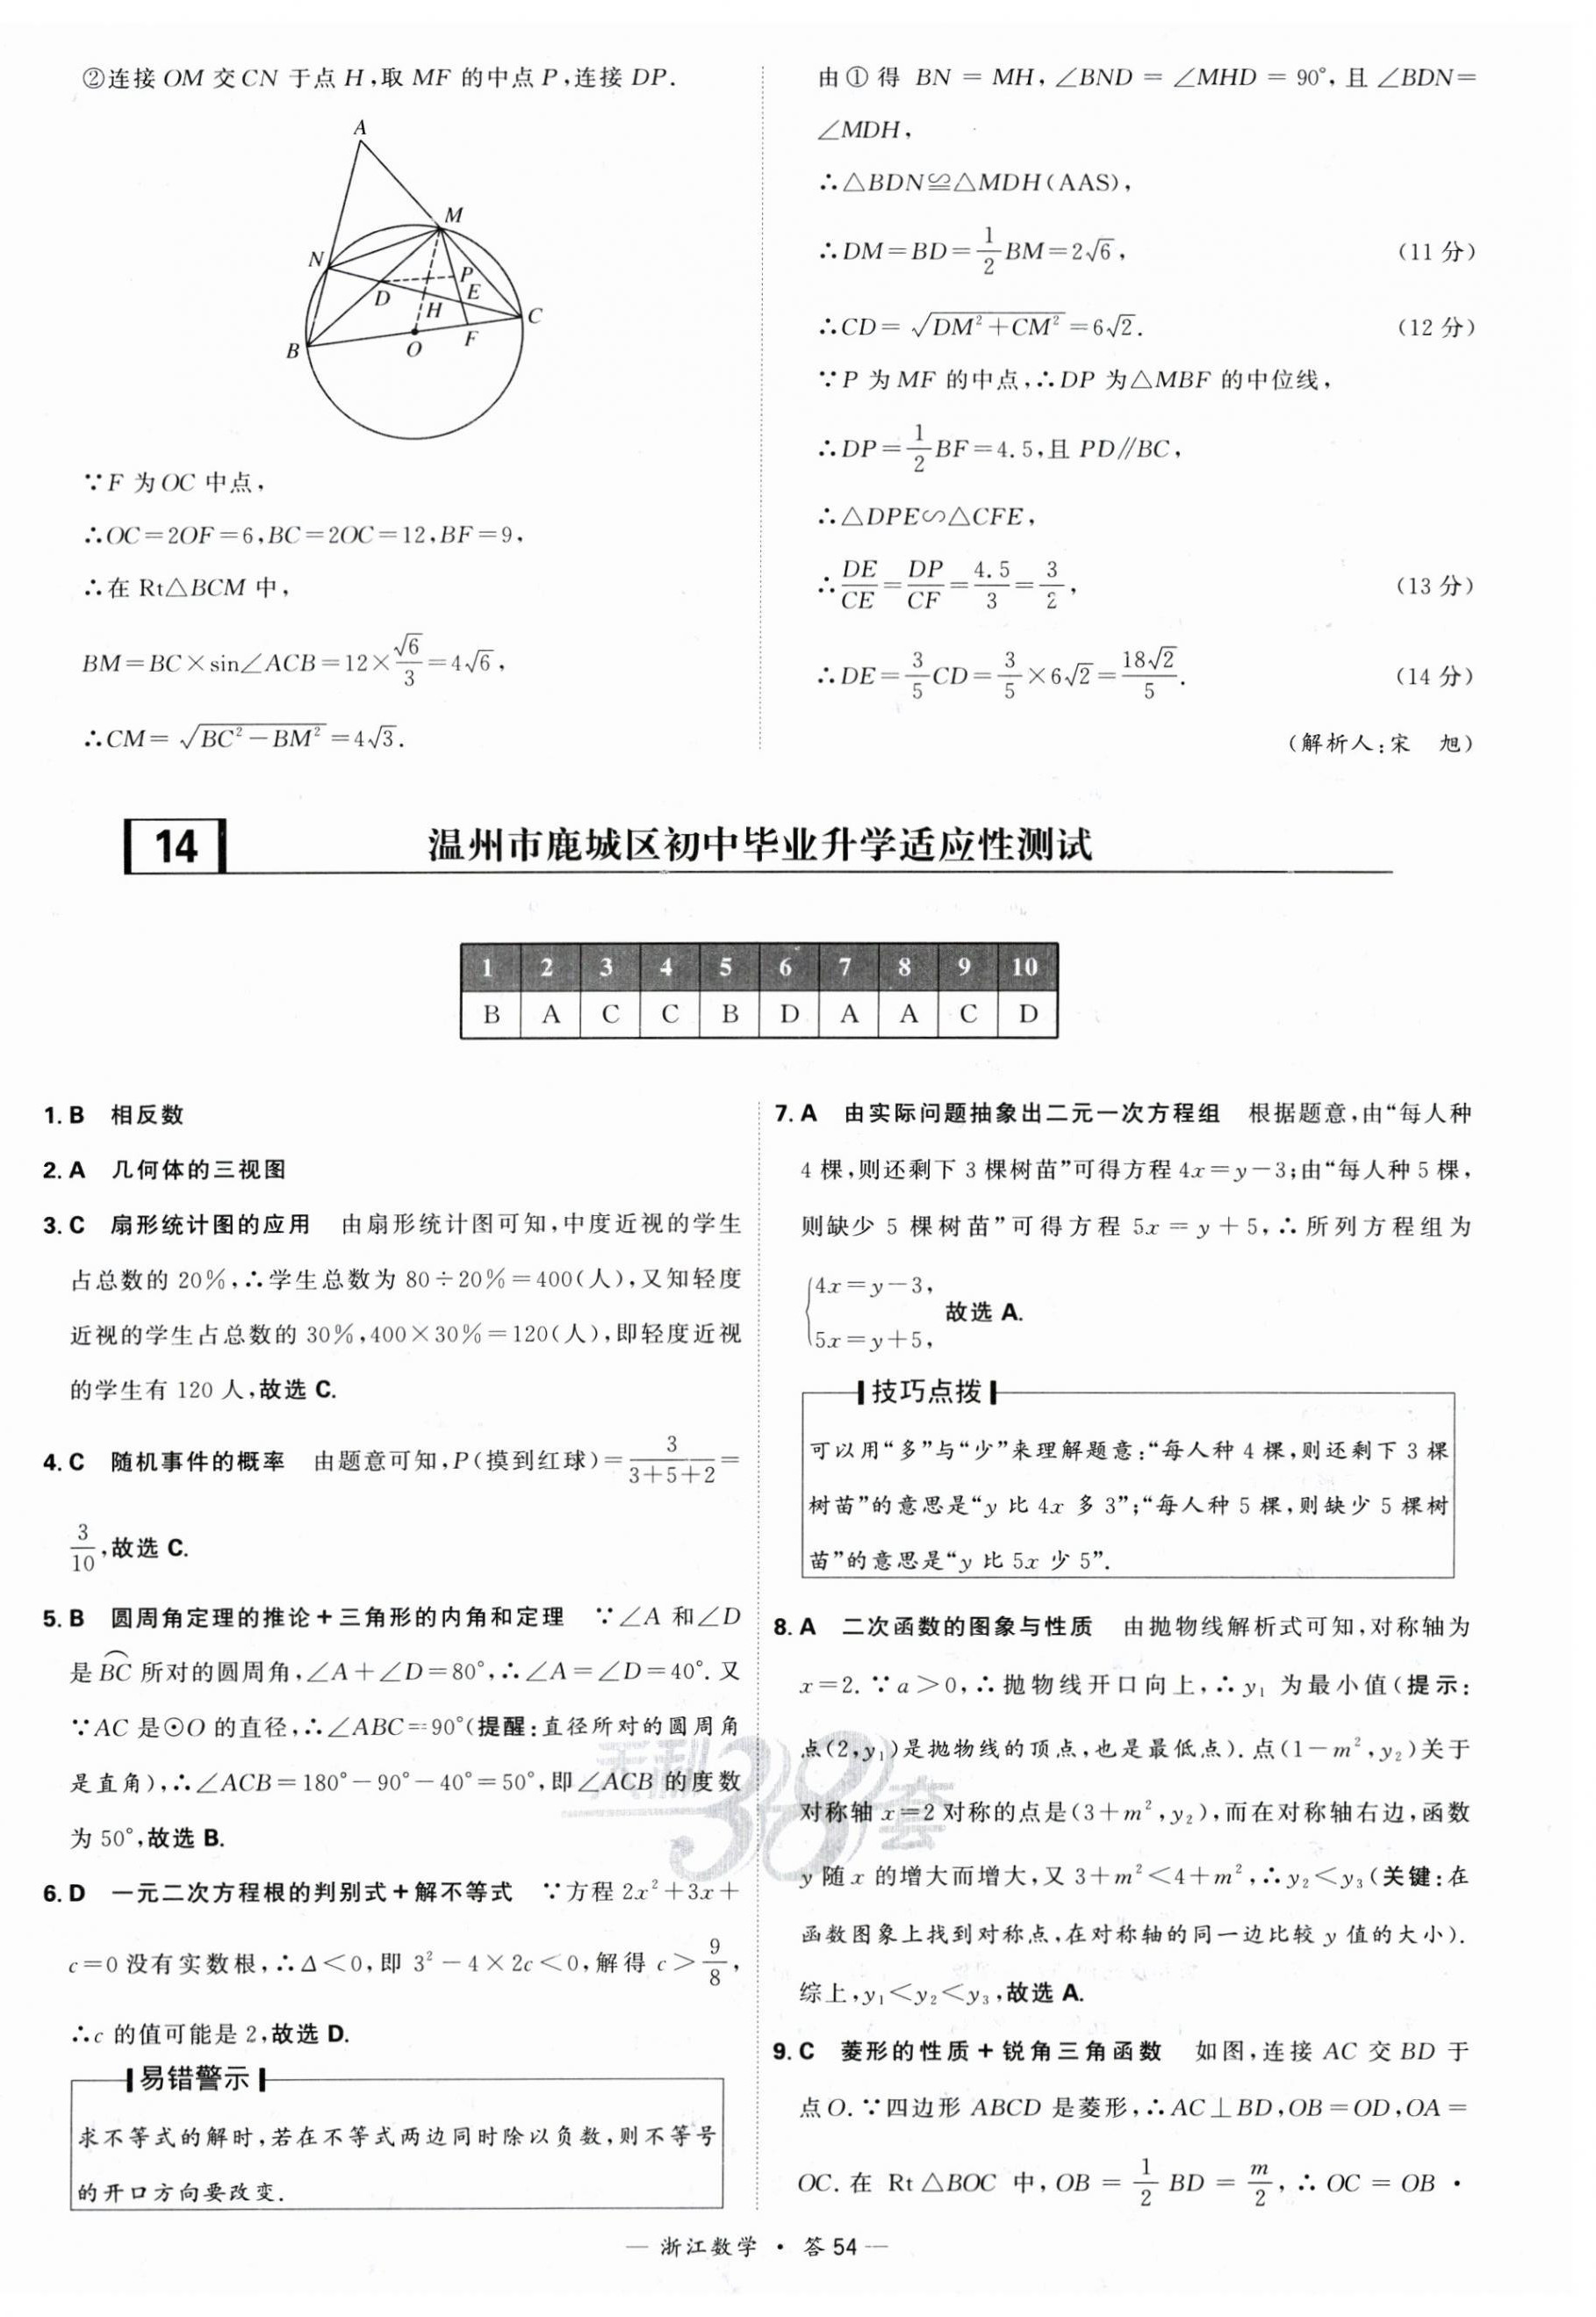 ②连接 OM 交 CN 于点 H,取 MF 的中点 P,连接 DP.
A
M
N
P
D
E
H
C
B
O
F
∵F 为 OC 中点,
∴OC=2OF=6,BC=2OC=12,BF=9,
∴在 Rt△BCM 中,
BM=BC×sin∠ACB=12×√6/3=4√6,
∴CM=√(BC²-BM²)=4√3.
由①得 BN = MH, ∠BND = ∠MHD = 90°, 且 ∠BDN=
∠MDH,
∴△BDN≌△MDH(AAS),
∴DM=BD=1/2BM=2√6, (11 分)
∴CD=√(DM²+CM²)=6√2. (12 分)
∵P 为 MF 的中点,∴DP 为△MBF 的中位线,
∴DP=1/2BF=4.5,且 PD∥BC,
∴△DPE∽△CFE,
∴DE/CE=DP/CF=4.5/3=3/2, (13 分)
∴DE=3/5CD=3/5×6√2=18√2/5. (14 分)
(解析人:宋 旭)
14 温州市鹿城区初中毕业升学适应性测试
1 2 3 4 5 6 7 8 9 10
B A C C B D A A C D
1. B 相反数
2. A 几何体的三视图
3. C 扇形统计图的应用 由扇形统计图可知,中度近视的学生
占总数的 20%,∴学生总数为 80÷20%=400(人),又知轻度
近视的学生占总数的 30%,400×30%=120(人),即轻度近视
的学生有 120 人,故选 C.
4. C 随机事件的概率 由题意可知,P(摸到红球)=3/(3+5+2)=
3/10,故选 C.
5. B 圆周角定理的推论+三角形的内角和定理 ∵∠A 和∠D
是⌒BC 所对的圆周角,∠A+∠D=80°,∴∠A=∠D=40°. 又
∵AC 是⊙O 的直径,∴∠ABC=90°(提醒:直径所对的圆周角
是直角),∴∠ACB=180°-90°-40°=50°,即∠ACB 的度数
为 50°,故选 B.
6. D 一元二次方程根的判别式+解不等式 ∵方程 2x²+3x+
c=0 没有实数根,∴Δ<0,即 3²-4×2c<0,解得 c>9/8,
∴c 的值可能是 2,故选 D.
易错警示
求不等式的解时,若在不等式两边同时除以负数,则不等号
的开口方向要改变.
7. A 由实际问题抽象出二元一次方程组 根据题意,由“每人种
4 棵,则还剩下 3 棵树苗”可得方程 4x=y-3;由“每人种 5 棵,
则缺少 5 棵树苗”可得方程 5x = y + 5,∴所列方程组为
{4x=y-3,
5x=y+5, 故选 A.
技巧点拨
可以用“多”与“少”来理解题意:“每人种 4 棵,则还剩下 3 棵
树苗”的意思是“y 比 4x 多 3”;“每人种 5 棵,则缺少 5 棵树
苗”的意思是“y 比 5x 少 5”.
8. A 二次函数的图象与性质 由抛物线解析式可知,对称轴为
x=2. ∵a>0,∴抛物线开口向上,∴y₁ 为最小值(提示:
点(2,y₁)是抛物线的顶点,也是最低点). 点(1-m²,y₂)关于
对称轴 x=2 对称的点是(3+m²,y₂),而在对称轴右边,函数
y 随 x 的增大而增大,又 3+m²<4+m²,∴y₂<y₃(关键:在
函数图象上找到对称点,在对称轴的同一边比较 y 值的大小).
综上,y₁<y₂<y₃,故选 A.
9. C 菱形的性质+锐角三角函数 如图,连接 AC 交 BD 于
点 O. ∵四边形 ABCD 是菱形,∴AC⊥BD,OB=OD,OA=
OC. 在 Rt△BOC 中, OB = 1/2 BD = m/2, ∴ OC = OB ·
天利38套
— 浙江数学 · 答 54 —